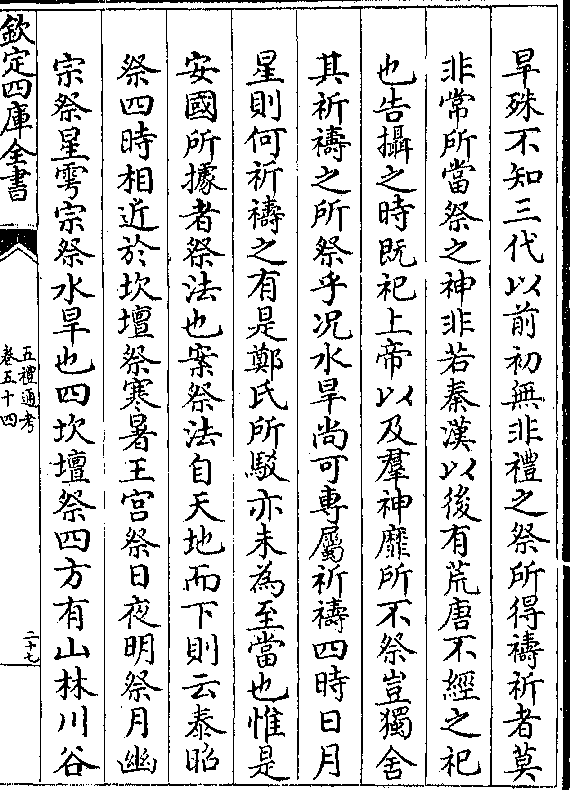 旱殊不知三代以前初無非禮之祭所得禱祈者莫
非常所當祭之神非若秦漢以後有荒唐不經之祀
也告攝之時既祀上帝以及羣神靡所不祭豈獨舍
其祈禱之所祭乎况水旱尚可專屬祈禱四時日月
星則何祈禱之有是鄭氏所駁亦未為至當也惟是
安國所據者祭法也案祭法自天地而下則云泰昭
祭四時相近於坎壇祭寒暑王宫祭日夜明祭月幽
宗祭星雩宗祭水旱也四坎壇祭四方有山林川谷
欽定四庫全書
五禮通考
卷五十四
二十七